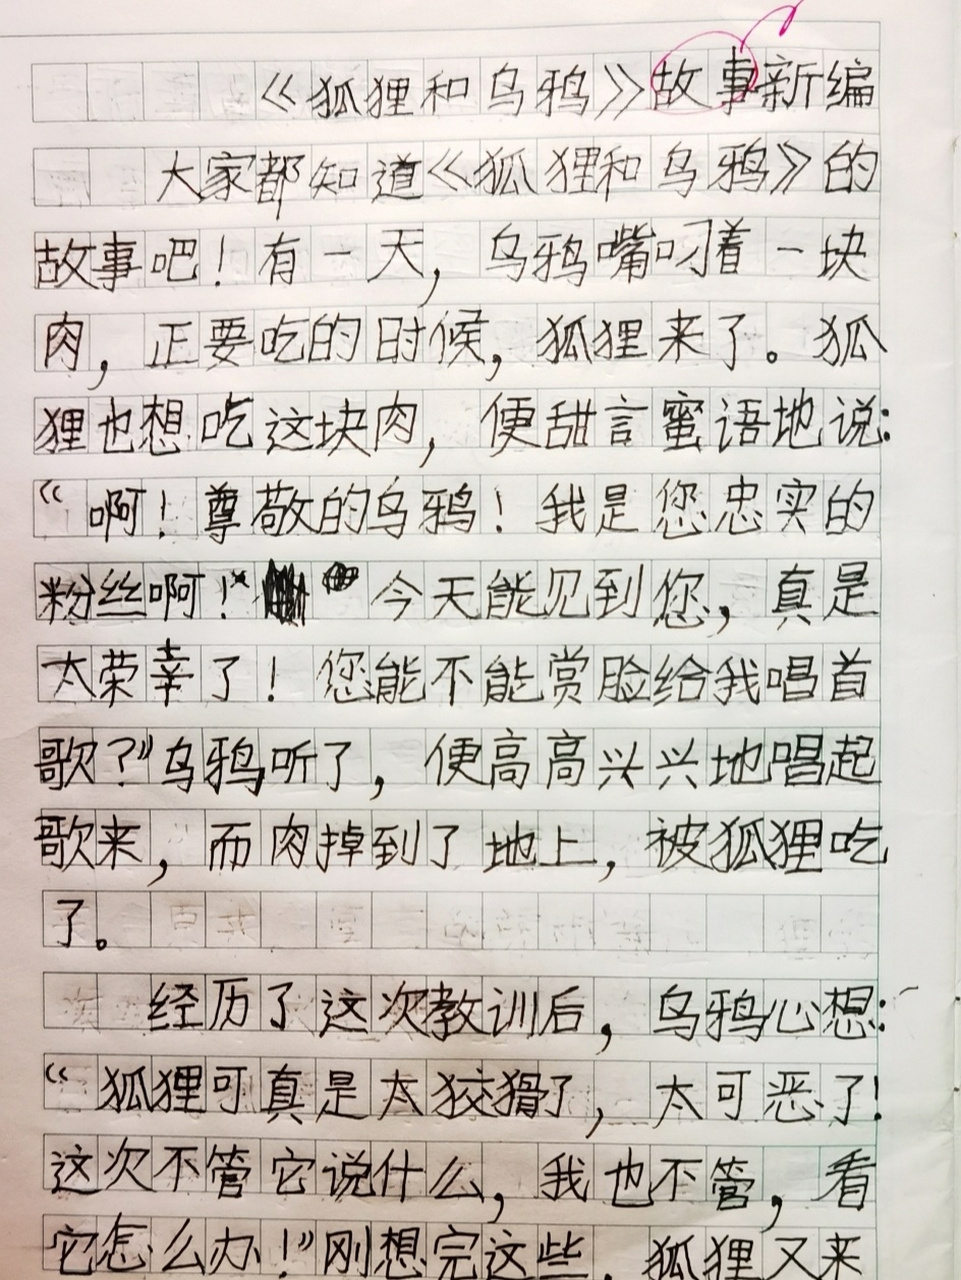 《狐狸和乌鸦》故事新编
大家都知道《狐狸和乌鸦》的
故事吧！有一天，乌鸦嘴叼着一块
肉，正要吃的时候，狐狸来了。狐
狸也想吃这块肉，便甜言蜜语地说：
“啊！尊敬的乌鸦！我是您忠实的
粉丝啊！今天能见到您，真是
太荣幸了！您能不能赏脸给我唱首
歌？”乌鸦听了，便高高兴兴地唱起
歌来，而肉掉到了地上，被狐狸吃
了。
经历了这次教训后，乌鸦心想：
“狐狸可真是太狡猾了，太可恶了！
这次不管它说什么，我也不管，看
它怎么办！”刚想完这些，狐狸又来